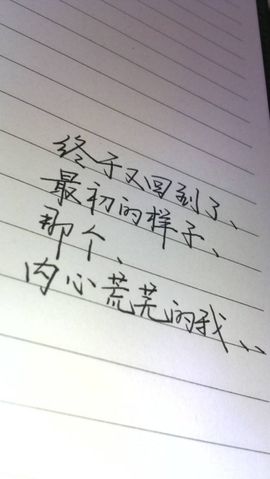 终于又回到了、
最初的样子、
那个、
内心荒芜的我、、